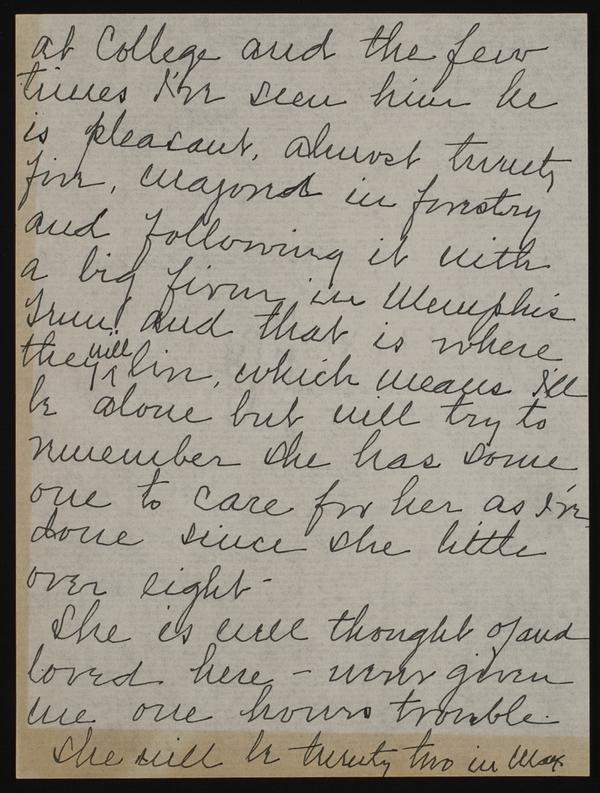 at College and the few
times I've seen him he
is pleasant, almost twenty
five, majored in forestry
and following it with
a big firm in Memphis
Tenn, and that is where
they will live, which means I'll
be alone but will try to
remember she has some
one to care for her as I've
done since she little
over eight -
She is well thought of and
loved here - never given
me one hours trouble.
She will be twenty two in May.